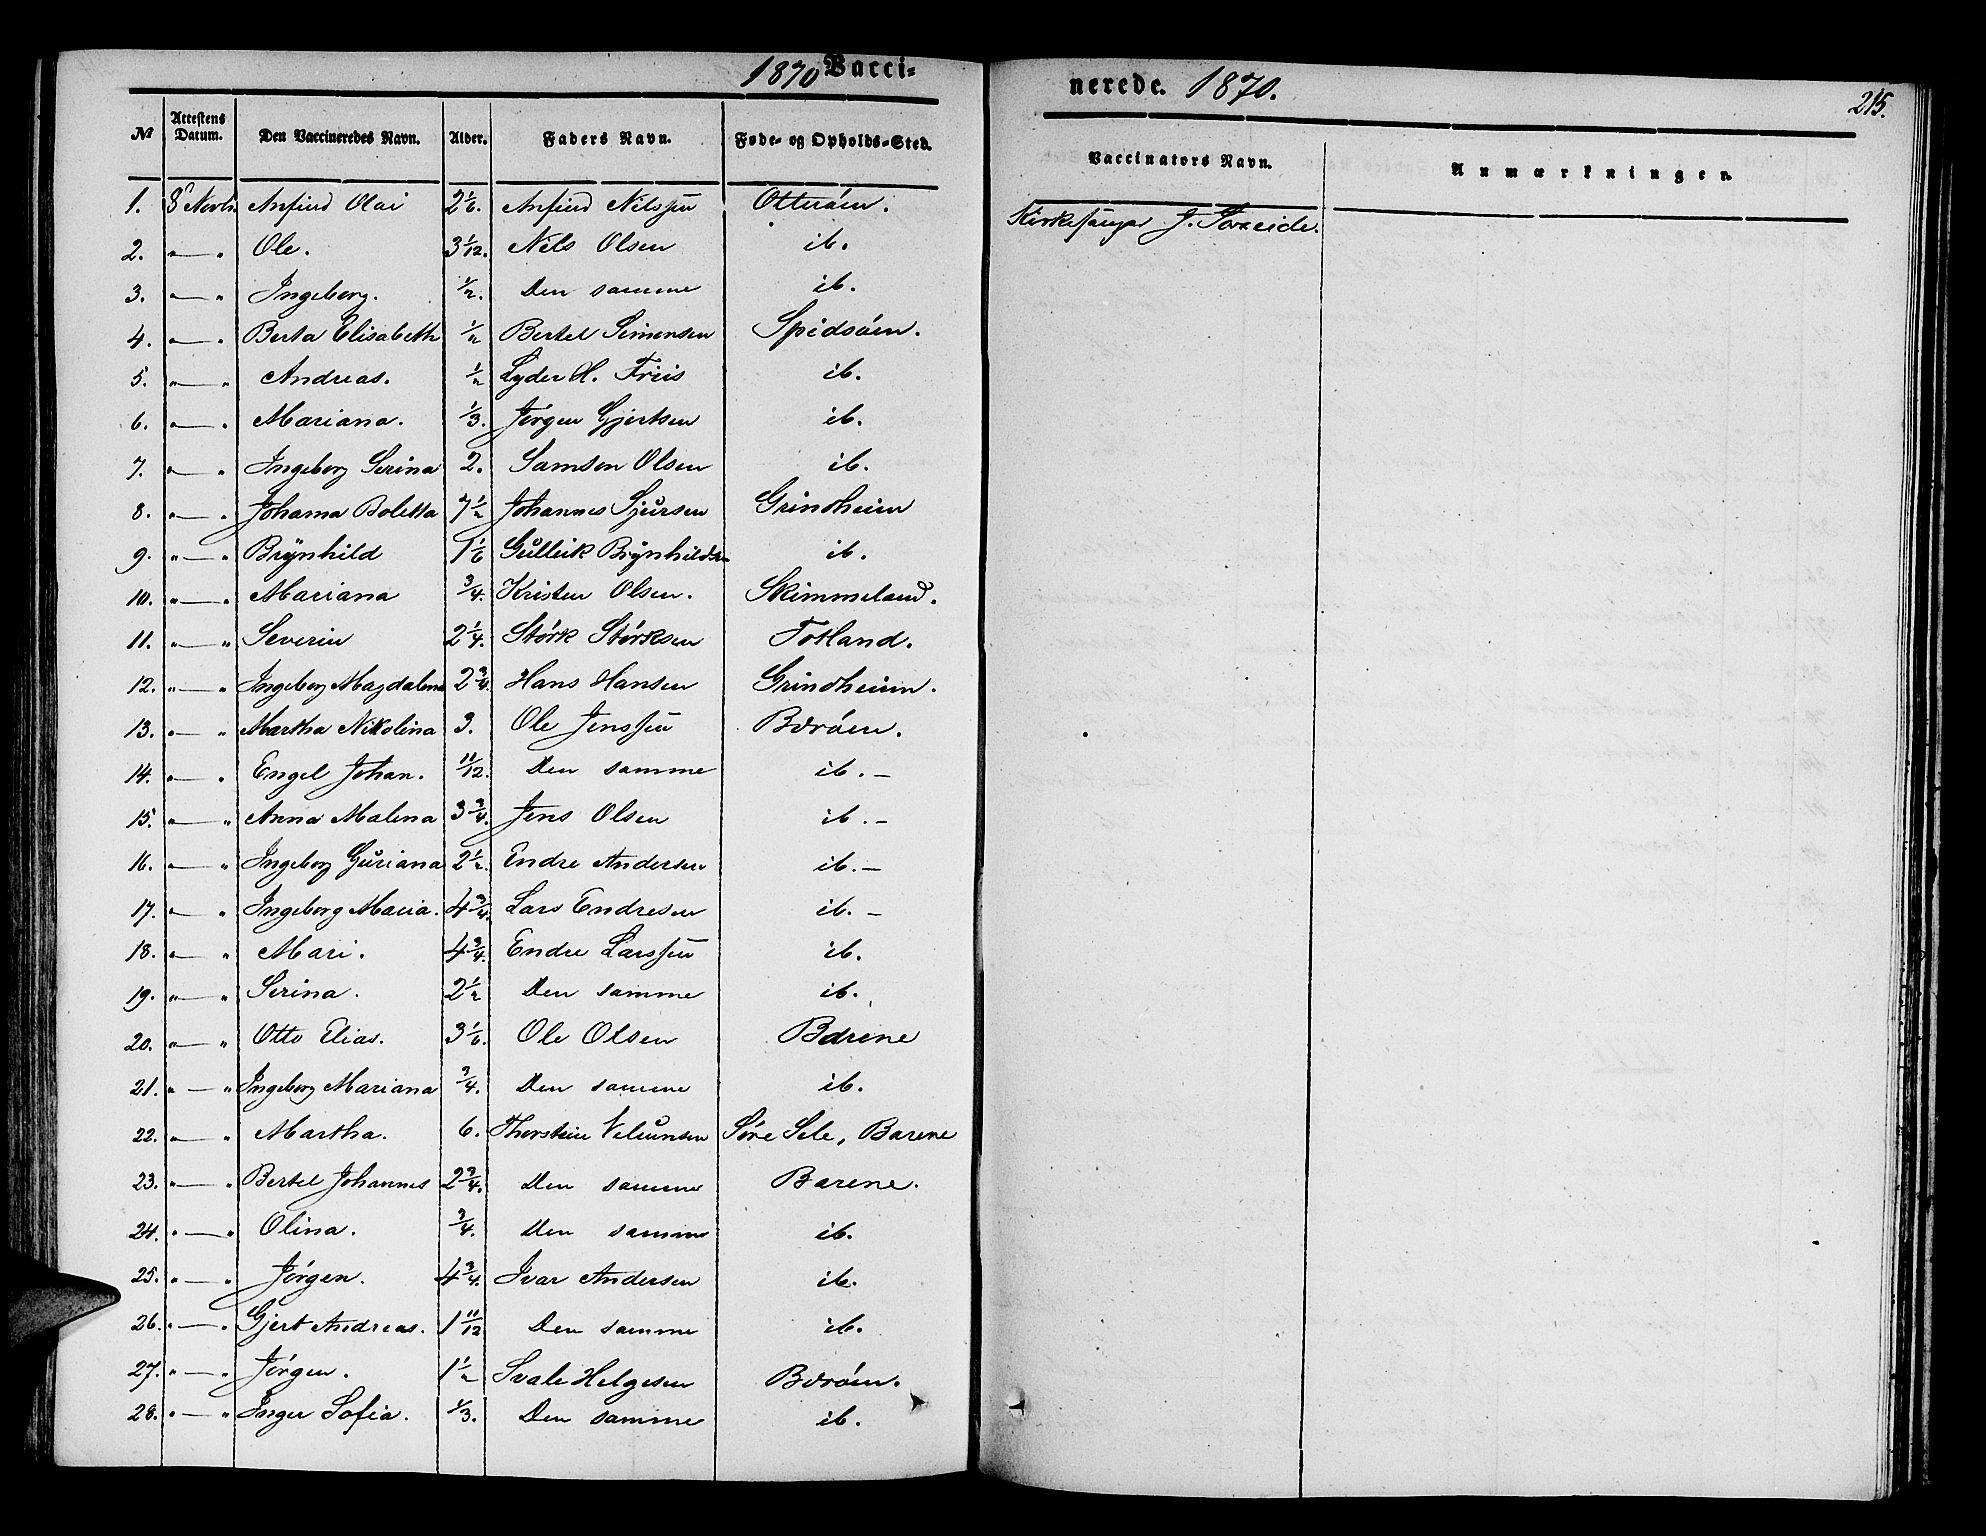 1870 Vacci=
nerede. 1870.
215.
№ Attestens Datum. Den Vaccineredes Navn. Alder. Faders Navn. Føde= og Opholds=Sted. Vaccinators Navn. Anmærkninger.
1. 8 Novbr. Anfind Olai 2 1/6. Anfind Nilssen Otterøen. Kirkesanger J.
2. " — " Ole. 3 1/12. Nils Olsen ib.
3. " — " Ingeborg. 1/2. Den samme ib.
4. " — " Berta Elisabeth 1/2 Bertel Simonsen Spidsøen.
5. " — " Andreas. 1/2 Lyder H. Friis ib.
6. " — " Mariana. 1/3. Jørgen Gjertsen ib.
7. " — " Ingeborg Serina 2. Samson Olsen ib.
8. " — " Johanna Boletta 7 1/2 Johannes Sjursen Grindheim
9. " — " Brynhild 1 1/6 Gulleik Brynhildsen ib.
10. " — " Mariana 3/4. Kristen Olsen. Skimmeland.
11. " — " Severin 2 1/4. Størk Størksen Totland.
12. " — " Ingeborg Magdalena 2 3/4. Hans Hansen Grindheim.
13. " — " Martha Nikolina 3. Ole Jenssen Børøen.
14. " — " Engel Johan. 11/12. Den samme ib. —
15. " — " Anna Malena 3 3/4. Jens Olsen ib. —
16. " — " Ingeborg Guriana 2 1/2. Endre Andersen ib. —
17. " — " Ingeborg Maria. 4 3/4. Lars Endresen ib. —
18. " — " Mari. 4 3/4. Endre Larssen ib.
19. " — " Serina. 2 1/2 Den samme ib.
20. " — " Otto Elias. 3 1/6. Ole Olsen Barene
21. " — " Ingeborg Mariana 3/4. Den samme ib.
22. " — " Martha. 6. Thorstein Søre Sele, Barene
23. " — " Bertel Johannes 2 3/4. Den samme Barene.
24. " — " Olina. 3/4. Den samme ib.
25. " — " Jørgen. 4 3/4. Ivar Andersen ib.
26. " — " Gjert Andreas. 1 11/12 Den samme ib.
27. " — " Jørgen. 1 1/2 Svale Helgesen Børøen.
28. " — " Inger Sofia. 1/3. Den samme ib.